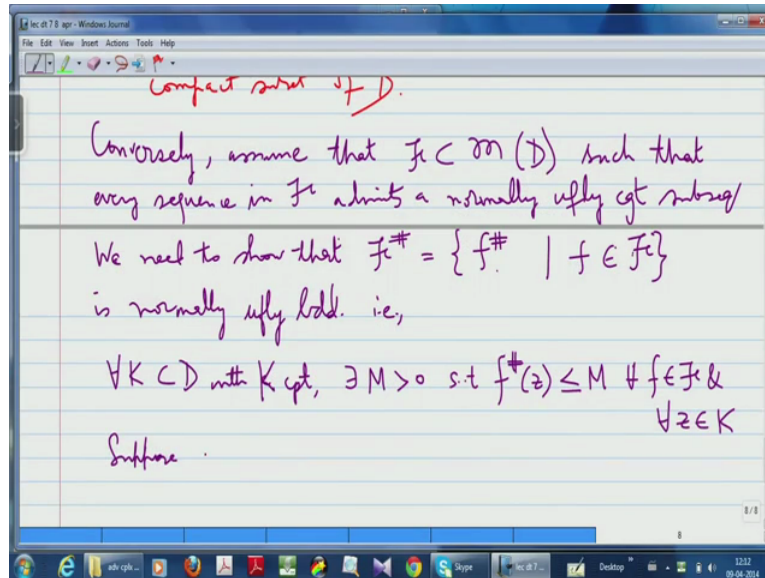 lec dt 7 8 apr - Windows Journal
File Edit View Insert Actions Tools Help
compact subset of D.
Conversely, assume that ℱ ⊂ 𝔐(D) such that
every sequence in ℱ admits a normally ufly cgt subseq/
We need to show that ℱ^# = { f^# | f ∈ ℱ }
is normally ufly bdd. i.e.,
∀K ⊂ D with K cpt, ∃ M > 0 s.t f^#(z) ≤ M ∀ f ∈ ℱ &
∀ z ∈ K
Suppose
8/8
8
adv cplx... Skype lec dt 7... Desktop 12:12
09-04-2014